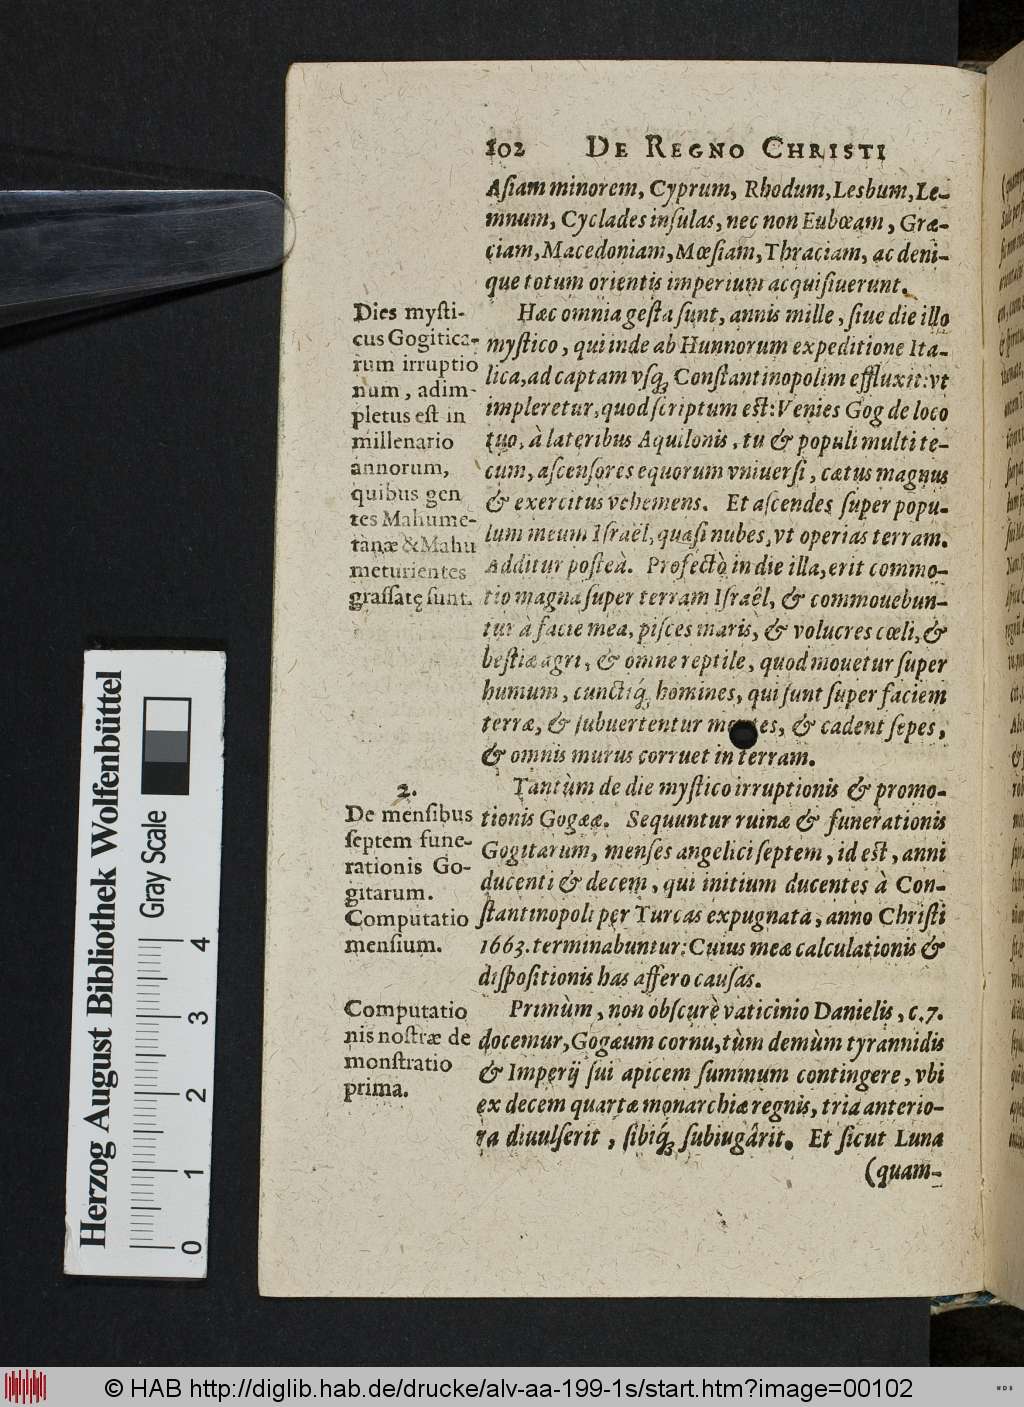 102 DE REGNO CHRISTI
Aſiam minorem, Cyprum, Rhodum, Lesbum, Le-
mnum, Cyclades inſulas, nec non Eubœam, Græ-
ciam, Macedoniam, Mœſiam, Thraciam, ac deni-
que totum orientis imperium acquiſiuerunt.
Hæc omnia geſta ſunt, annis mille, ſiue die illo
myſtico, qui inde ab Hunnorum expeditione Ita-
lica, ad captam vſq; Conſtantinopolim effluxit: vt
impleretur, quod ſcriptum eſt: Venies Gog de loco
tuo, à lateribus Aquilonis, tu & populi multi te-
cum, aſcenſores equorum vniuerſi, cœtus magnus
& exercitus vehemens. Et aſcendes ſuper popu-
lum meum Iſraël, quaſi nubes, vt operias terram.
Additur poſteà. Profectò in die illa, erit commo-
tio magna ſuper terram Iſraël, & commouebun-
tur à facie mea, piſces maris, & volucres cœli, &
beſtiæ agri, & omne reptile, quod mouetur ſuper
humum, cunctiq́; homines, qui ſunt ſuper faciem
terræ, & ſubuertentur montes, & cadent ſepes,
& omnis murus corruet in terram.
Dies myſti-
cus Gogitica-
rum irruptio
num, adim-
pletus eſt in
millenario
annorum,
quibus gen
tes Mahume-
tanæ & Mahu
meturientes
graſſatę ſunt.
Tantùm de die myſtico irruptionis & promo-
tionis Gogææ. Sequuntur ruinæ & funerationis
Gogitarum, menſes angelici ſeptem, id eſt, anni
ducenti & decem, qui initium ducentes à Con-
ſtantinopoli per Turcas expugnata, anno Chriſti
1663. terminabuntur: Cuius meæ calculationis &
diſpoſitionis has affero cauſas.
2.
De menſibus
ſeptem fune-
rationis Go-
gitarum.
Computatio
menſium.
Primùm, non obſcurè vaticinio Danielis, c. 7.
docemur, Gogæum cornu, tùm demùm tyrannidis
& Imperij ſui apicem ſummum contingere, vbi
ex decem quartæ monarchiæ regnis, tria anterio-
ra diuulſerit, ſibiq́; ſubiugârit. Et ſicut Luna
(quam-
Computatio
nis noſtræ de
monſtratio
prima.
Herzog August Bibliothek Wolfenbüttel
Gray Scale
0 1 2 3 4
© HAB http://diglib.hab.de/drucke/alv-aa-199-1s/start.htm?image=00102
WDB